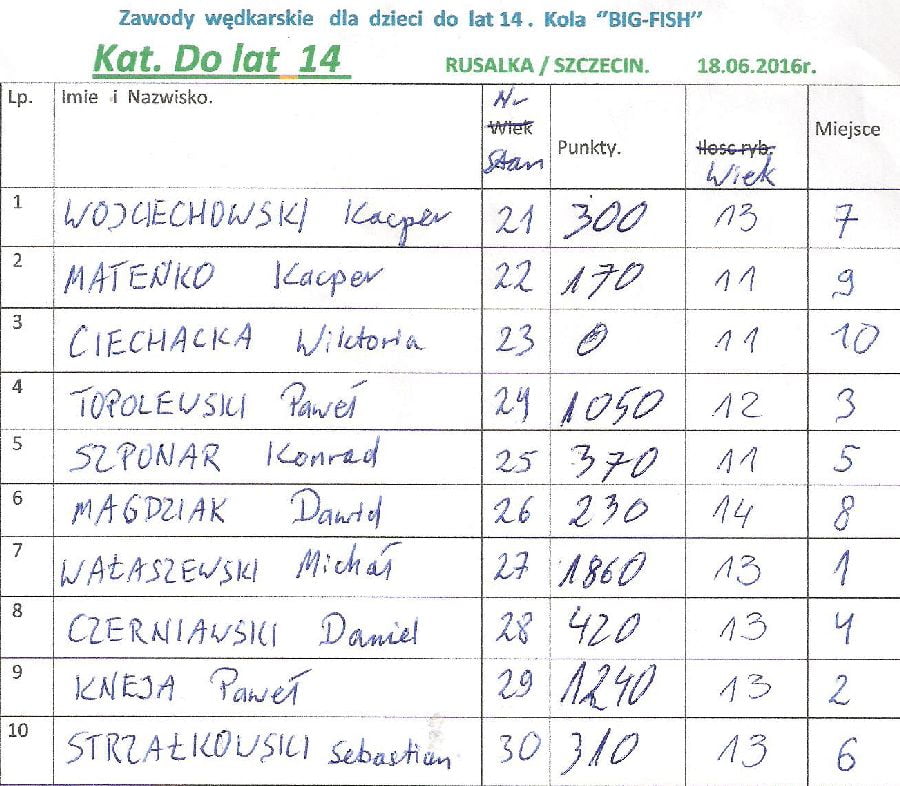 Zawody wędkarskie dla dzieci do lat 14 . Kola "BIG-FISH"
Kat. Do lat 14 RUSALKA / SZCZECIN. 18.06.2016r.
Lp. Imie i Nazwisko. Nr Wiek Stan Punkty. Ilosc ryb. Wiek Miejsce
1 WOJCIECHOWSKI Kacper 21 300 13 7
2 MATEŃKO Kacper 22 170 11 9
3 CIECHACKA Wiktoria 23 0 11 10
4 TOPOLEWSKI Paweł 24 1050 12 3
5 SZPONAR Konrad 25 370 11 5
6 MAGDZIAK Dawid 26 230 14 8
7 WAŁASZEWSKI Michał 27 1860 13 1
8 CZERNIAWSKI Daniel 28 420 13 4
9 KNEJA Paweł 29 1240 13 2
10 STRZAŁKOWSKI Sebastian 30 310 13 6